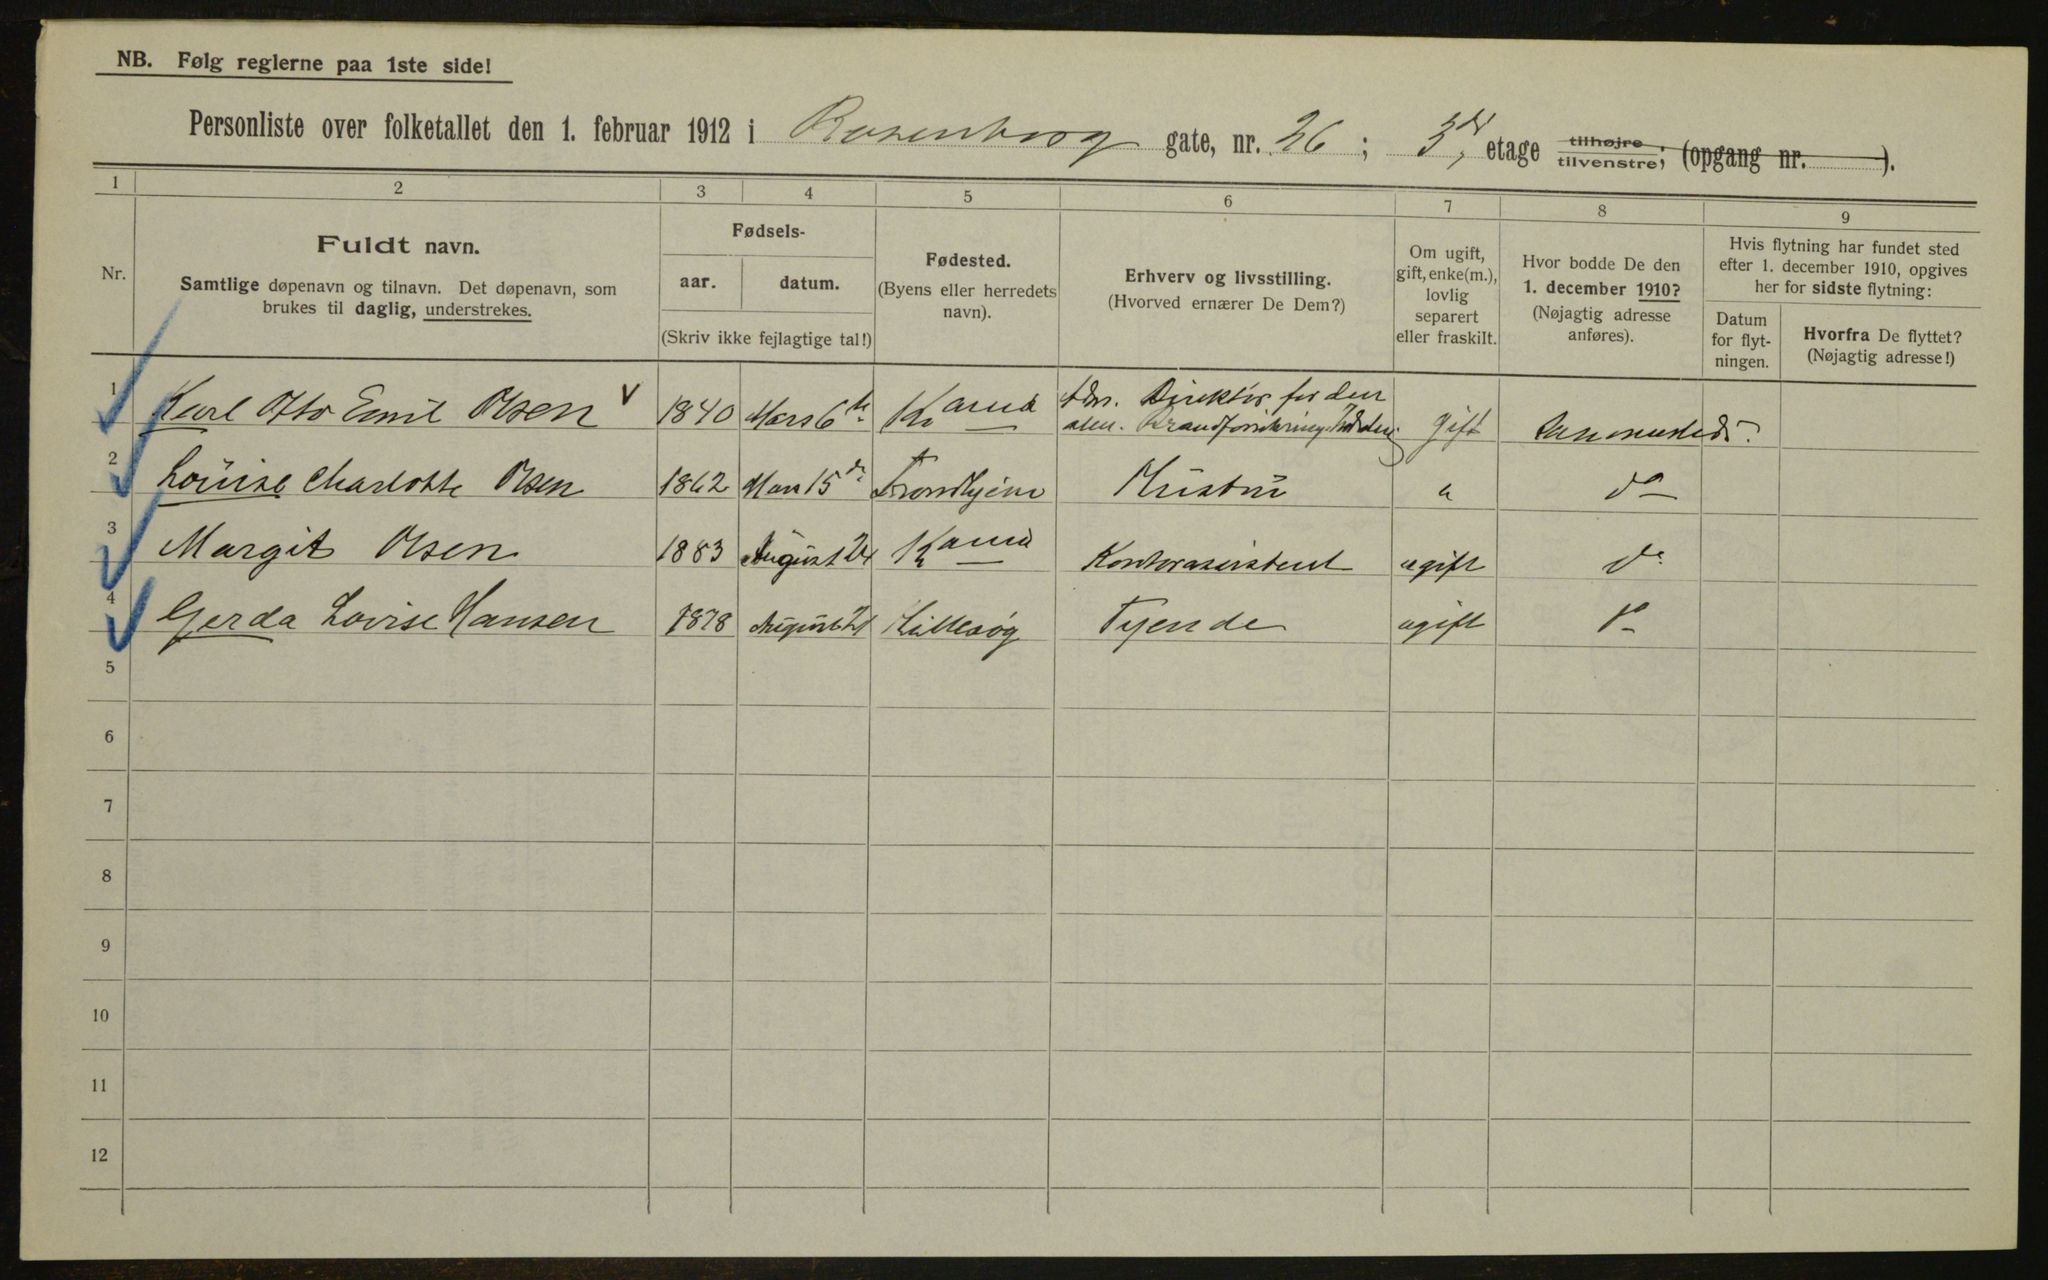 NB. Følg reglerne paa 1ste side!
Personliste over folketallet den 1. februar 1912 i Rosenborg gate, nr. 26; 3die etage tilhøjre, tilvenstre, (opgang nr. ).
1 2 3 4 5 6 7 8 9
Nr.
Fuldt navn.
Samtlige døpenavn og tilnavn. Det døpenavn, som
brukes til daglig, understrekes.
Fødsels-
aar. datum.
(Skriv ikke fejlagtige tal!)
Fødested.
(Byens eller herredets
navn).
Erhverv og livsstilling.
(Hvorved ernærer De Dem?)
Om ugift,
gift, enke(m.),
lovlig
separert
eller fraskilt.
Hvor bodde De den
1. december 1910?
(Nøjagtig adresse
anføres).
Hvis flytning har fundet sted
efter 1. december 1910, opgives
her for sidste flytning:
Datum
for flyt-
ningen.
Hvorfra De flyttet?
(Nøjagtig adresse!)
1 Karl Otto Emil Olsen v 1840 Mars 6te Kr.ania Adm. Direktør for den
alm. Brandforsikrings gift sammesteds.
2 Louise Charlotte Olsen 1862 15de Trondhjem Hustru " do
3 Margit Olsen 1883 August 24 Kr.ania Kontorassistent ugift do
4 Gerda Lovise Hansen 1878 August 21 Tyende ugift do
5
6
7
8
9
10
11
12